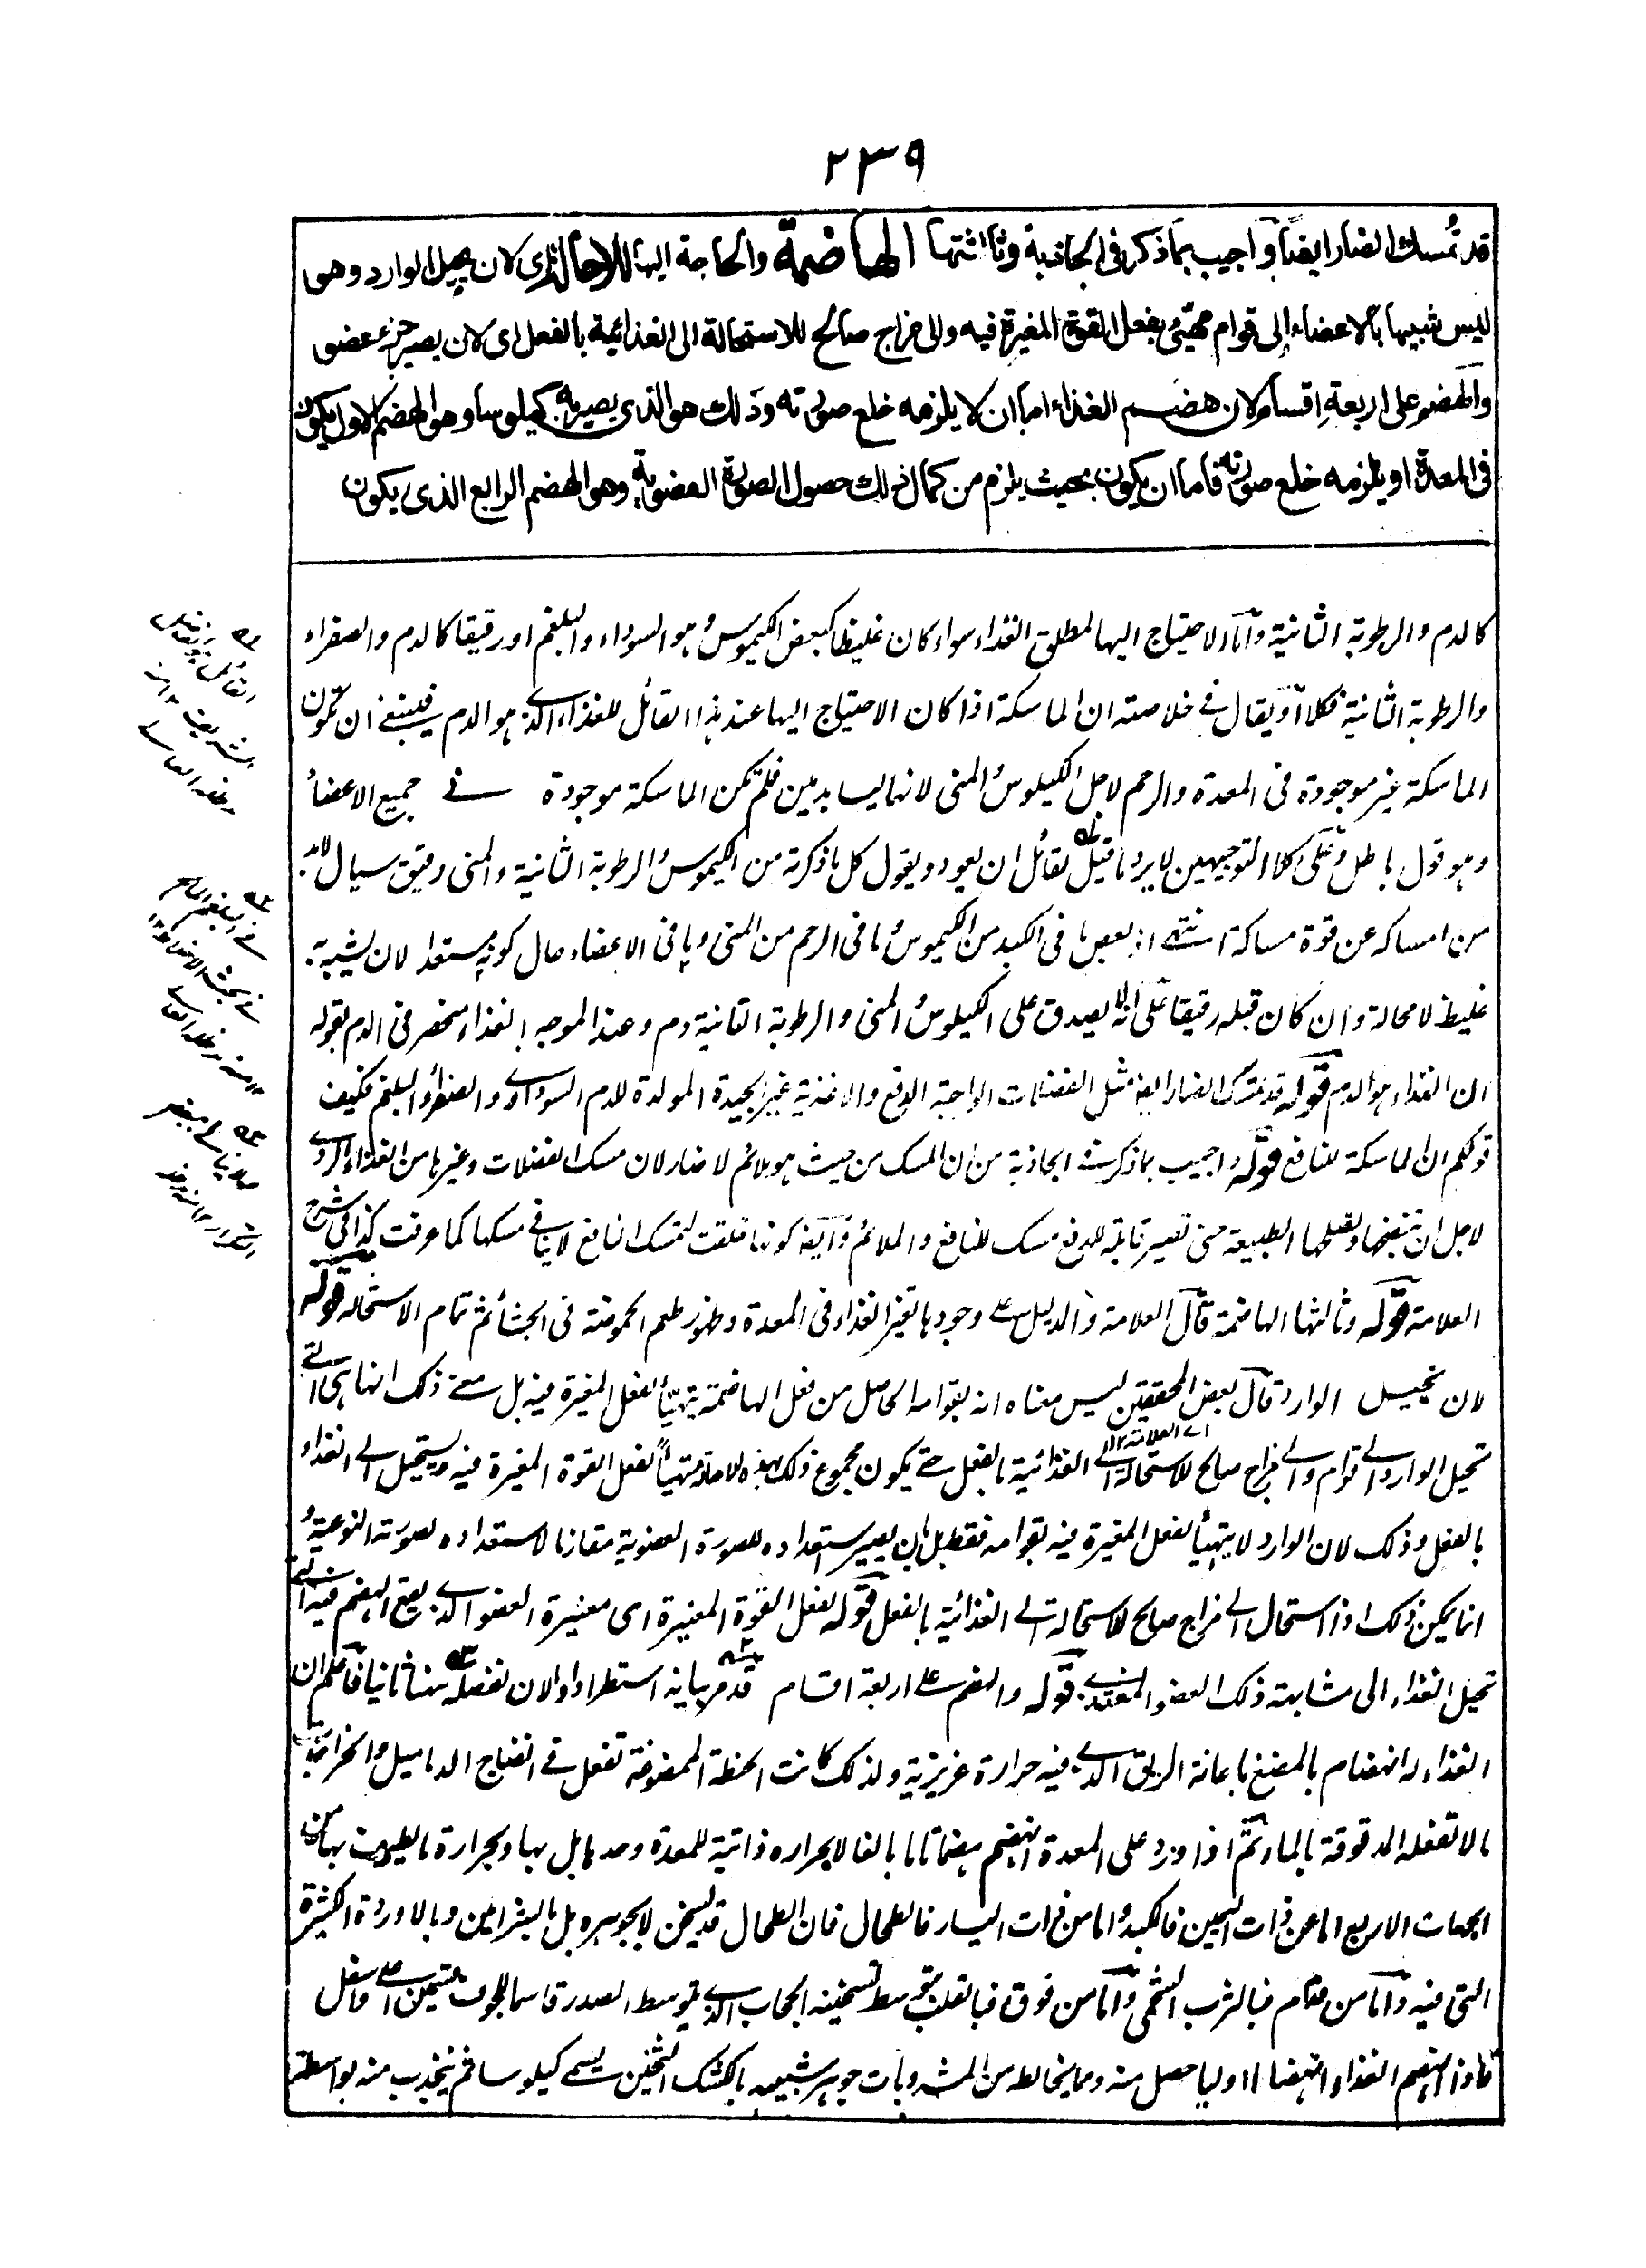 ٢٣٩
قد تمسك الضار ايضا واجيب بما ذكر فى الجاذبة وثالثتها الهاضمة والحاجة اليها للاحالة اى لان يحيل الوارد وهى
ليس شبيها بالاعضاء الى قوام مهيّئ بفعل القوة المغيرة فيه والى مزاج صالح للاستحالة الى الغذائية بالفعل اى لان يصير جزء عضو
والهضم على اربعة اقسام لان هضم الغذاء اما ان لا يلزمه خلع صورته وذلك هو الذى يصير به كيلوسا وهو الهضم الاول يكون
فى المعدة او يلزمه خلع صورته فاما ان يكون بحيث يلزم من كمال ذلك حصول الصورة العضوية وهو الهضم الرابع الذى يكون
كالدم والرطوبة الثانية واما الاحتياج اليها لمطلق الغذاء سواء كان غليظا كبعض الكيموس وهو السوداء والبلغم او رقيقا كالدم والصفراء
والرطوبة الثانية فكلا او يقال فى خلاصته ان الماسكة اذا كان الاحتياج اليها عند هذا القائل للغذاء الذى هو الدم فينبغى ان تكون
الماسكة غير موجودة فى المعدة والرحم لاجل الكيلوس والمنى لانهما ليسا بدمين فلم تكن الماسكة موجودة فى جميع الاعضاء
وهو قول باطل وعلى كلا التوجيهين لا يرد ما قيل لقائل ان يعود ويقول كل ما ذكرته من الكيموس والرطوبة الثانية والمنى رقيق سيال لابد
من امساكه عن قوة مساكة انتهى اذ بعض ما فى الكبد من الكيموس وما فى الرحم من المنى وما فى الاعضاء حال كونه مستعدا لان يشبه به
غليظ لا محالة وان كان قبله رقيقا على انه لا يصدق على الكيلوس والمنى والرطوبة الثانية دم وعند الموجه الغذاء منحصر فى الدم بقوله
ان الغذاء هو الدم قوله قد تمسك الضار ايضا مثل الفضلات الواجبة الدفع والاغذية غير الجيدة المولدة للدم السوداوى والصفراوى والبلغم فكيف
قولكم ان الماسكة للنافع قوله واجيب بما ذكر فى الجاذبة من ان المسك من حيث هو ملائم لا ضار لان مسك الفضلات وغيرها من الغذاء الردى
لاجل ان تنضجها وتصلحها الطبيعة حتى تصير قابلة للدفع مسك للنافع والملائم وايضا كونها خلقت لتمسك النافع لا ينافى مسكها كما عرفت كذا فى شرح
العلامة قوله وثالثتها الهاضمة قال العلامة والدليل على وجودها تغير الغذاء فى المعدة وظهور طعم الحموضة فى الجشاء ثم تمام الاستحالة قوله
لان يحيل الوارد قال بعض المحققين ليس معناه انه بقوامه الحاصل من فعل الهاضمة يتهيأ لفعل المغيرة فيه بل معنى ذلك انها هى التى
اى العلامة ١٢
تحيل الوارد الى قوام والى مزاج صالح للاستحالة الى الغذائية بالفعل حتى يكون مجموع ذلك بهذه الاحالة متهيأ لفعل القوة المغيرة فيه ويستحيل الى الغذاء
بالفعل وذلك لان الوارد لا يتهيأ لفعل المغيرة فيه بقوامه فقط بل بان يصير استعداده للصورة العضوية مقارنا لاستعداده لصورته النوعية و
انما يمكن ذلك اذا استحال الى مزاج صالح للاستحالة الى الغذائية بالفعل قوله لفعل القوة المغيرة اى مغيرة العضو الذى يقع الهضم فيه التى
تحيل الغذاء الى مشابهة ذلك العضو المغتذى قوله والهضم على اربعة اقسام قد مر بيانه استطرادا والان نفصله هنا ثانيا فاعلم ان
الغذاء له انهضام بالمضغ باعانة الريق الذى فيه حرارة غريزية ولذلك كانت الحنطة الممضوغة تفعل فى انضاج الدماميل والخراجات
ما لا تفعله المدقوقة بالماء ثم اذا ورد على المعدة انهضم هضما تاما بالغا لا بحرارة ذاتية للمعدة وحدها بل بها وبحرارة ما يطيف بها من
الجهات الاربع اما من ذات اليمين فالكبد واما من ذات اليسار فالطحال فان الطحال قد يسخن لا بجوهره بل بالشرايين وبالاوردة الكثيرة
التى فيه واما من قدام فبالثرب الشحمى واما من فوق فبالقلب بتوسط تسخينه الحجاب الذى يتوسط الصدر قاسما للجوف بقسمين اعلى واسفل
فاذا انهضم الغذاء انهضاما اوليا حصل منه ومما يخالطه من المشروبات جوهر شبيه بالكشك الثخين يسمى كيلوسا ثم ينجذب منه بواسطة